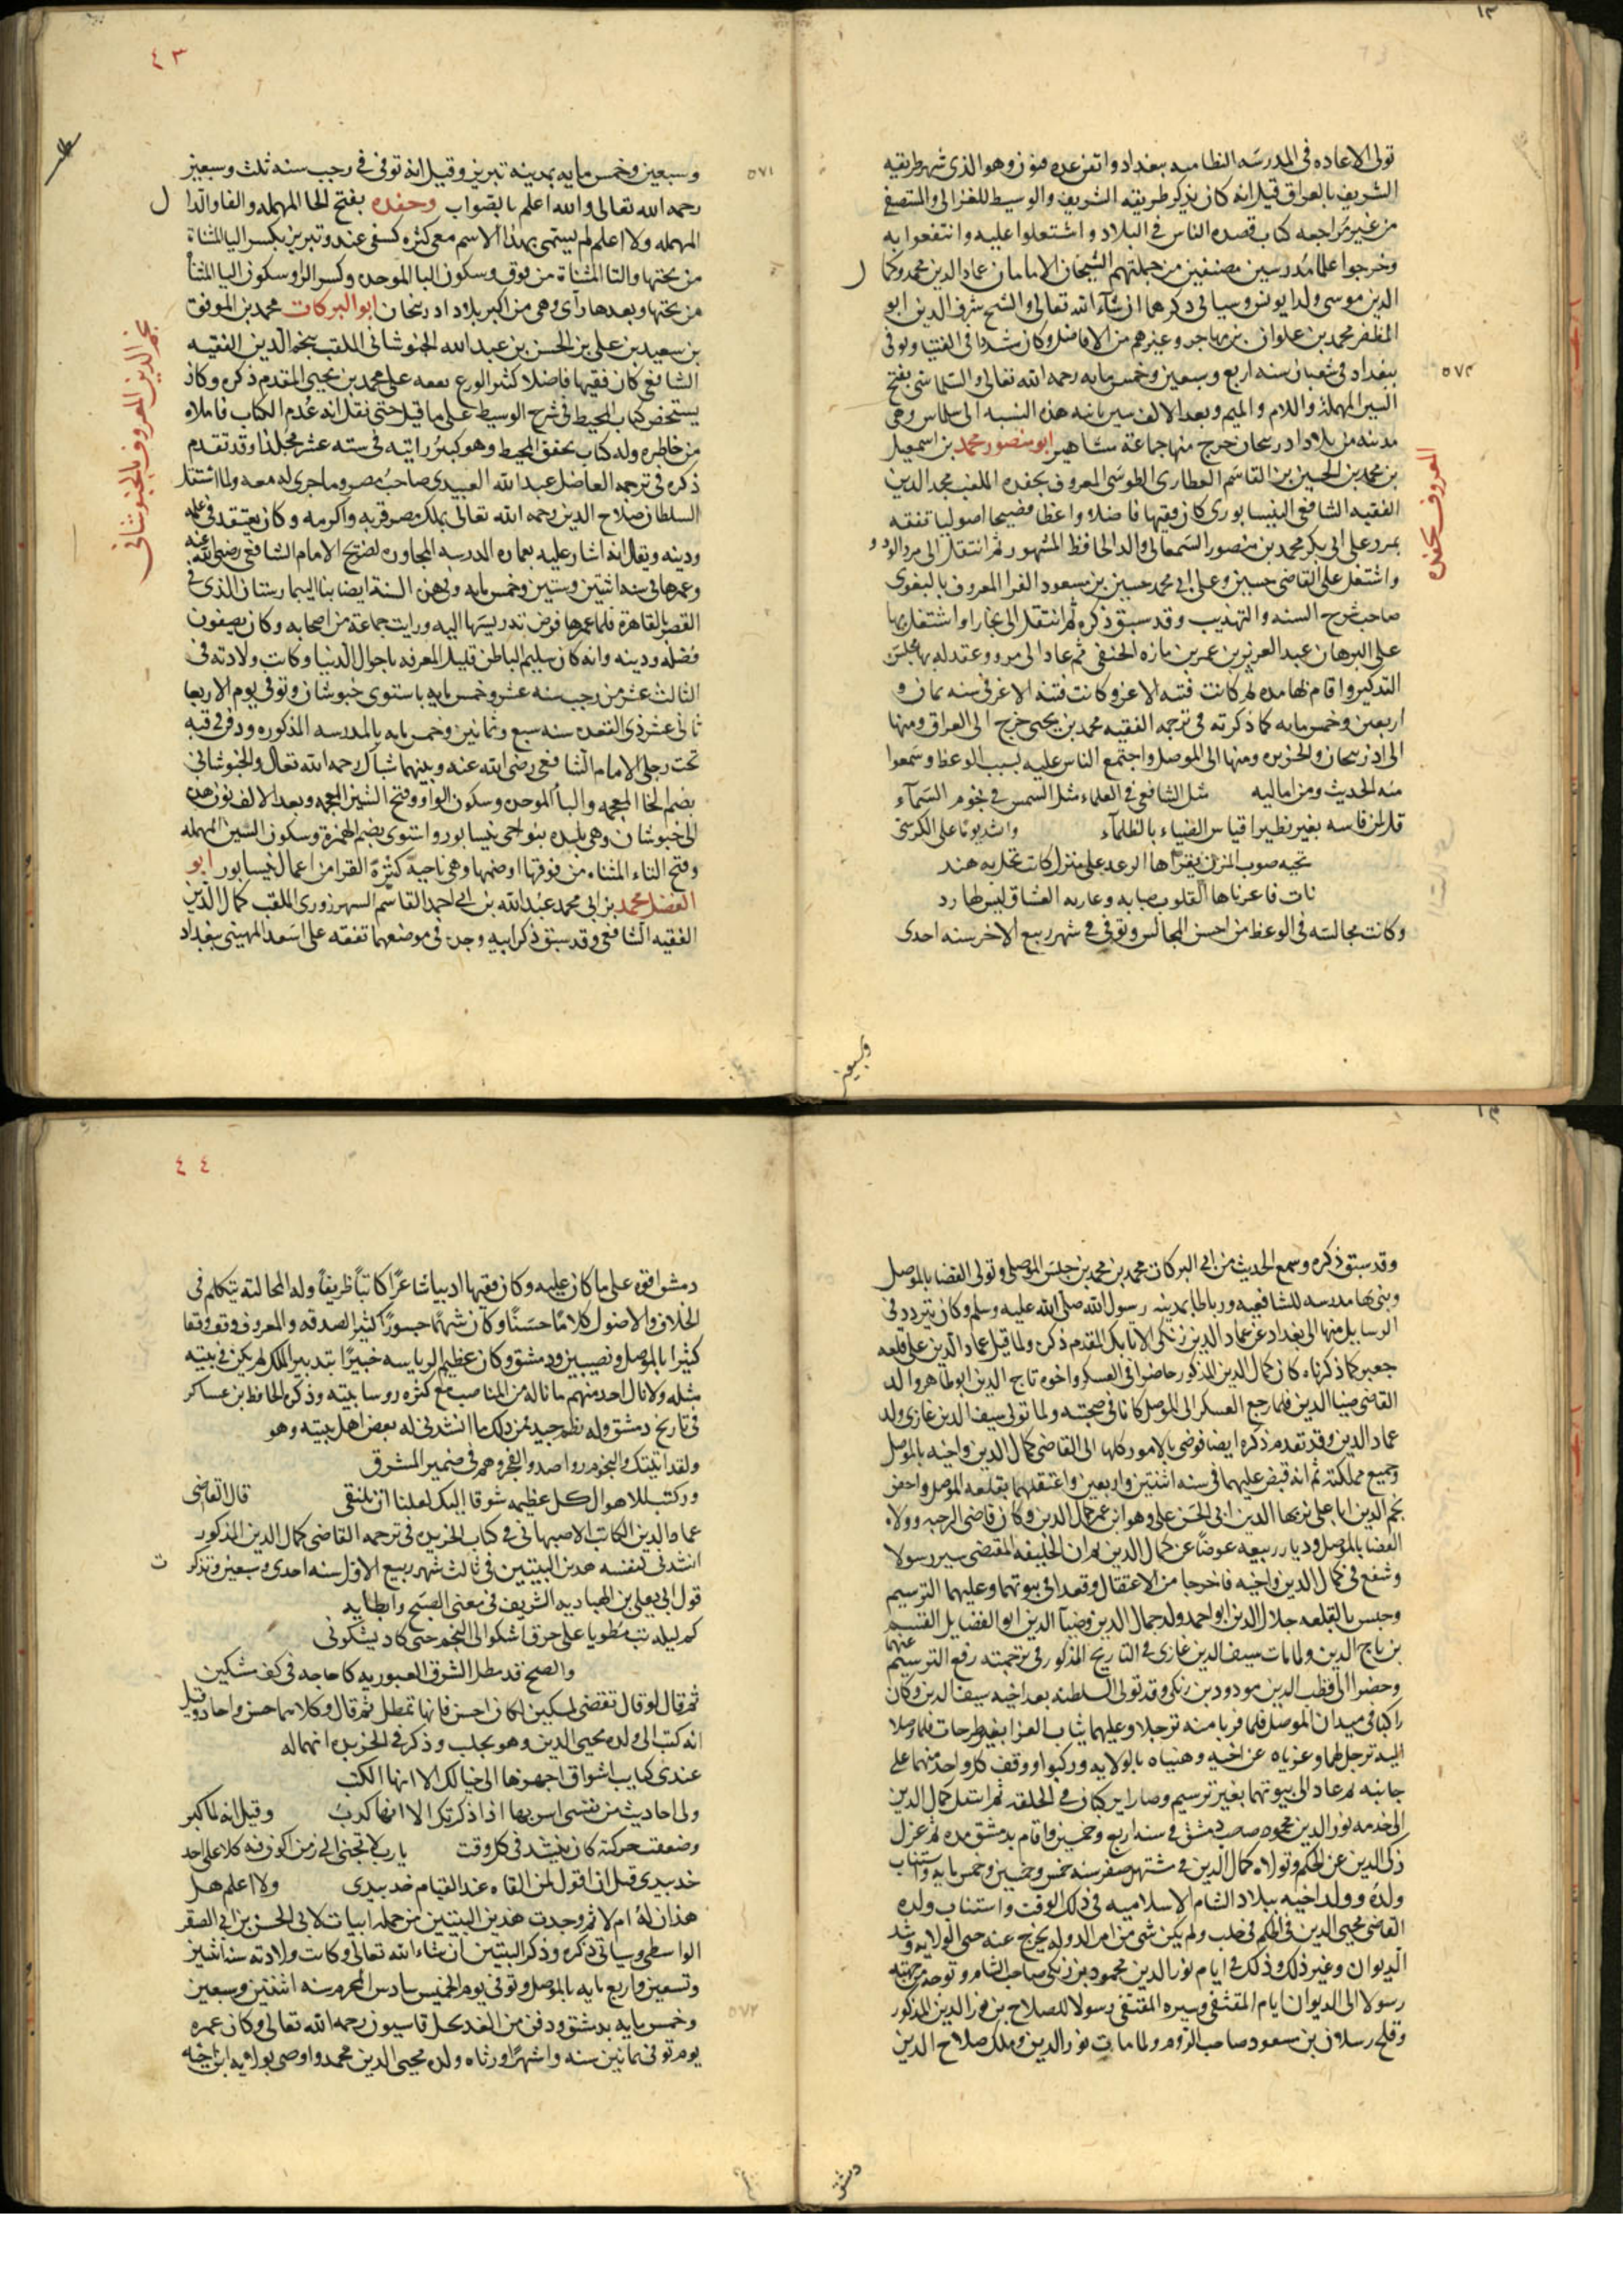 تولى الاعاده فى المدرسه النظاميه ببغداد واتقن عده فنون وهو الذى شهر طريقه
الشريف بالعراق قيل انه كان يذكر طريقه الشريف والوسيط للغزالى والمستصفى
من غير مراجعه كتاب قصده الناس فى البلاد واشتغلوا عليه وانتفعوا به
وخرجوا علما مدرسين مصنفين من جملتهم الشيخان الامامان عماد الدين محمد وكما
الدين موسى ولدا يونس وسياتى ذكرهما ان شآء الله تعالى والشيخ شرف الدين ابو
المظفر محمد بن علوان بن مهاجر وغيرهم من الافاضل وكان مسددا فى الفتيا وتوفى
ببغداد فى شعبان سنه اربع وسبعين وخمس مايه رحمه الله تعالى والسلماسى بفتح
٥٧٤
السين المهملة واللام والميم وبعد الالف سين ثانيه هذه النسبه الى سلماس وهى
مدينه من بلاد ادربيجان خرج منها جماعة مشاهير ابو منصور محمد بن اسمعيل
بن محمد بن الحسين بن القاسم العطارى الطوسى المعروف بحفده الملقب مجد الدين
المعروف بحفده
الفقيه الشافعى النيسابورى كان فقيها فاضلا واعظا فصيحا اصوليا تفقه
بمرو على ابى بكر محمد بن منصور السمعانى والد الحافظ المشهور ثم انتقل الى مرو الروذ و
واشتغل على القاضى حسين وعلى ابى محمد حسين بن مسعود الفرا المعروف بالبغوى
صاحب شرح السنه والتهذيب وقد سبق ذكره ثم انتقل الى بخارا واشتغل بها
على البرهان عبد العزيز بن عمر بن مازه الحنفى ثم عاد الى مرو وعقد له بها مجلس
التذكير واقام بها مده ثم كانت فتنه الاغز وكانت فتنة الاغز فى سنه ثمان و
اربعين وخمس مايه كما ذكرته فى ترجمه الفقيه محمد بن يحيى خرج الى العراق ومنها
الى اذربيجان والجزيره ومنها الى الموصل واجتمع الناس عليه بسبب الوعظ وسمعوا
منه الحديث ومن اماليه مثل الشافعى فى العلماء مثل الشمس فى نجوم السمآء
قل لمن قاسه بغير نظير اقياس الضياء بالظلمآء وانشد يومًا على الكرسى
تحيه صوب المزن يقرآها الرعد على منزل كانت تحل به هند
نات فاعرناها القلوب صبابه وعاريه العشاق ليس لها رد
وكانت مجالسه فى الوعظ من احسن المجالس وتوفى فى شهر ربيع الاخر سنه احدى
وسبعين
٤٣
وسبعين وخمس مايه بمدينه تبريز وقيل انه توفى فى رجب سنه ثلث وسبعين
٥٧١
رحمه الله تعالى والله اعلم بالصواب وحفده بفتح الحا المهمله والفا والدا ل
المهمله ولا اعلم لم يسمى بهذا الاسم مع كثره كشفى عنه وتبريز بكسر اليا المثناة
من تحتها والتا المثناة من فوق وسكون البا الموحده وكسر الرا وسكون اليا المثنا
من تحتها وبعدها زآى وهى من اكبر بلاد ادربيجان ابو البركات محمد بن الموفق
بن سعيد بن على بن الحسن بن عبد الله الخبوشانى الملقب نجم الدين الفقيه
نجم الدين المعروف بالخبوشانى
الشافعى كان فقيها فاضلا كثير الورع تفقه على محمد بن يحيى المقدم ذكره وكان
يستحضر كتاب المحيط فى شرح الوسيط على ما قيل حتى نقل انه عُدم الكتاب فاملاه
من خاطره وله كتاب تحقق المحيط وهو كبير رايته فى سته عشر مجلدًا وقد تقدم
ذكره فى ترجمه العاضد عبد الله العبيدى صاحب مصر وما جرى له معه ولما استقل
السلطان صلاح الدين رحمه الله تعالى بملك مصر قربه واكرمه وكان يعتقد فى علمه
ودينه ويقال انه اشار عليه بعماره المدرسه المجاوره لضريح الامام الشافعى رضى الله عنه
وعمرها فى سنه اثنتين وسبين وخمس مايه وفى هذه السنه ايضا بنا البيمارستان الذى فى
القصر بالقاهرة فلما عمرها فوض تدريسها اليه ورايت جماعة من اصحابه وكان يصفون
فضله ودينه وانه كان سليم الباطن قليل المعرفه باحوال الدنيا وكانت ولادته فى
الثالث عشر من رجب سنه عشر وخمس مايه باستوى خبوشان وتوفى يوم الاربعا
ثانى عشر ذى القعده سنه سبع وثمانين وخمس مايه بالمدرسه المذكوره ودفن فى قبه
تحت رجلى الامام الشافعى رضى الله عنه وبينهما شباك رحمه الله تعالى والخبوشانى
بضم الخا المعجمه والبا الموحده وسكون الواو وفتح الشين المعجمه وبعد الالف نون هذه
الى خبوشان وهى بليده بنواحى نيسابور واستوى بضم الهمزة وسكون السين المهمله
وفتح التاء المثناه من فوقها او ضمها وهى ناحية كثيرة القرا من اعمال نيسابور ابو
الفضل محمد بن ابى محمد عبد الله بن ابى احمد القاسم السهرزورى الملقب كمال الدين
الفقيه الشافعى وقد سبق ذكر ابيه وجده فى موضعهما تفقه على اسعد الميهنى ببغداد
وقد سبق ذكره وسمع الحديث من ابى البركات محمد بن محمد بن خميس الموصلى وتولى القضا بالموصل
وبنى بها مدرسه للشافعيه ورباطا بمدينه رسول الله صلى الله عليه وسلم وكان يتردد فى
الرسايل منها الى بغداد عن عماد الدين زنكى الاتابك المقدم ذكره ولما قيل عماد الدين على قلعه
جعبر كما ذكرناه كان كمال الدين المذكور حاضرا فى العسكر واخوه تاج الدين ابو طاهر والد
القاضى ضيا الدين فلما رجع العسكر الى الموصل كانا فى صحبته ولما تولى سيف الدين غازى ولد
عماد الدين وقد تقدم ذكره ايضا فوض بالامور كلها الى القاضى كمال الدين واخيه بالموصل
وجميع مملكته ثم انه قبض عليهما فى سنه اثنتين واربعين واعتقلهما بقلعه الموصل واحضر
نجم الدين ابا على بن بها الدين ابى الحسن على وهو ابن عم كمال الدين وكان قاضى الرحبه وولاه
القضا بالموصل وديار ربيعه عوضًا عن كمال الدين ثم ان الخليفه المقتضى سير رسولا
وشفع فى كمال الدين واخيه فاخرجا من الاعتقال وقعدا فى بيوتهما وعليهما الترسيم
وحبس بالقلعه جلال الدين ابو احمد ولد جمال الدين وضيآ الدين ابو الفضايل القسم
بن تاج الدين ولما مات سيف الدين غازى فى التاريخ المذكور فى ترجمته رفع الترسيم عنهما
وحضرا الى قطب الدين مودود بن زنكى وقد تولى السلطنه بعد اخيه سيف الدين وكان
راكبا فى ميدان الموصل فلما قربا منه ترجلا وعليهما ثياب العزا بغير طرحات فلما وصلا
اليه ترجل لهما وعزياه عن اخيه وهنياه بالولايه وركبوا ووقف كل واحد منهما على
جانبه ثم عاد الى بيوتهما بغير ترسيم وصارا يركبان فى الخلقه ثم انتقل كمال الدين
الى خدمه نور الدين محمود صاحب دمشق فى سنه اربع وخمسين واقام بدمشق مده ثم عزل
زكى الدين عن الحكم وتولاه كمال الدين فى شهر صفر سنه خمس وخمسين وخمس مايه واستناب
ولده وولد اخيه ببلاد الشام الاسلاميه فى ذلك الوقت واستناب ولده
القاضى محيى الدين فى الحكم فى حلب ولم يكن شى من امر الدوله يخرج عنه حتى الولايه وشد
الديوان وغير ذلك وذلك فى ايام نور الدين محمود بن زنكى صاحب الشام وتوجه من جهته
رسولا الى الديوان ايام المقتفى وسيره المقتفى رسولا للصلاح بن نور الدين المذكور
وقلج رسلان بن مسعود صاحب الروم ولما مات نور الدين وملك صلاح الدين
دمشق
٤٤
دمشق اقره على ما كان عليه وكان فقيها اديبا شاعرًا كاتبًا ظريفًا وله المجالسه يتكلم فى
الخلاف والاصول كلامًا حسنًا وكان شهمًا جسورًا كثير الصدقه والمعروف وقف وقفا
كثيرا بالموصل ونصيبين ودمشق وكان عظيم الرياسه خبيرًا بتدبير الملك لم يكن فى بيته
مثله ولا نال احد منهم ما ناله من المناصب مع كثره روسا بيته وذكره الحافظ بن عساكر
فى تاريخ دمشق وله نظم جيد فمن ذلك ما انشدنى له بعض اهل بيته وهو
ولقد اتيتك والنجوم رواصد والفجر وهم فى ضمير المشرق
وركبت للاهوال كل عظيمه شوقا اليك لعلنا ان نلتقى قال القاضى
عماد الدين الكاتب الاصبهانى فى كتاب الخريده فى ترجمه القاضى كمال الدين المذكور
انشدنى لنفسه هذين البيتين فى ثالث شهر ربيع الاول سنه احدى وسبعين وتذكر ت
قول ابى يعلى بن الهباديه الشريف فى معنى الصبح وابطايه
كم ليله بت مطويا على حرق اشكوا الى النجم حتى كاد يشكونى
والصبح قد مطل الشرق العيون به كا حاجه فى كف شكين
ثم قال لو قال تقضى لمسكين لكان احسن فانها تمطل ثم قال وكلاهما احسن واجاد وقيل
انه كتب الى ولده محيى الدين وهو بحلب وذكر فى الخريده انهما له
عندى كتايب اشواق اجهزها الى خيالك الا انها الكتب
ولى احاديث من نفسى اسر بها اذا ذكرتك الا انها كذبُ وقيل انه لما كبر
وضعفت حركته كان ينشد فى كل وقت يا رب لا تحينى الى زمن اكون فيه كلا على احد
خد بيدى قبل ان اقول لمن القاه عند القيام خد بيدى ولا اعلم هل
هذان له ام لا ثم وجدت هذين البيتين من جمله ابيات لابى الحسن بن ابى الصقر
الواسطى وسياتى ذكره وذكر البيتين ان شاء الله تعالى وكانت ولادته سنه اثنين
وتسعين واربع مايه بالموصل وتوفى يوم الخميس سادس المحرم سنه اثنتين وسبعين
وخمس مايه بدمشق ودفن من الغد بجبل قاسيون رحمه الله تعالى وكان عمره
٥٧٢
يوم توفى ثمانين سنه واشهرًا ورثاه ولده محيى الدين محمد واوصى بولايه ابن اخيه